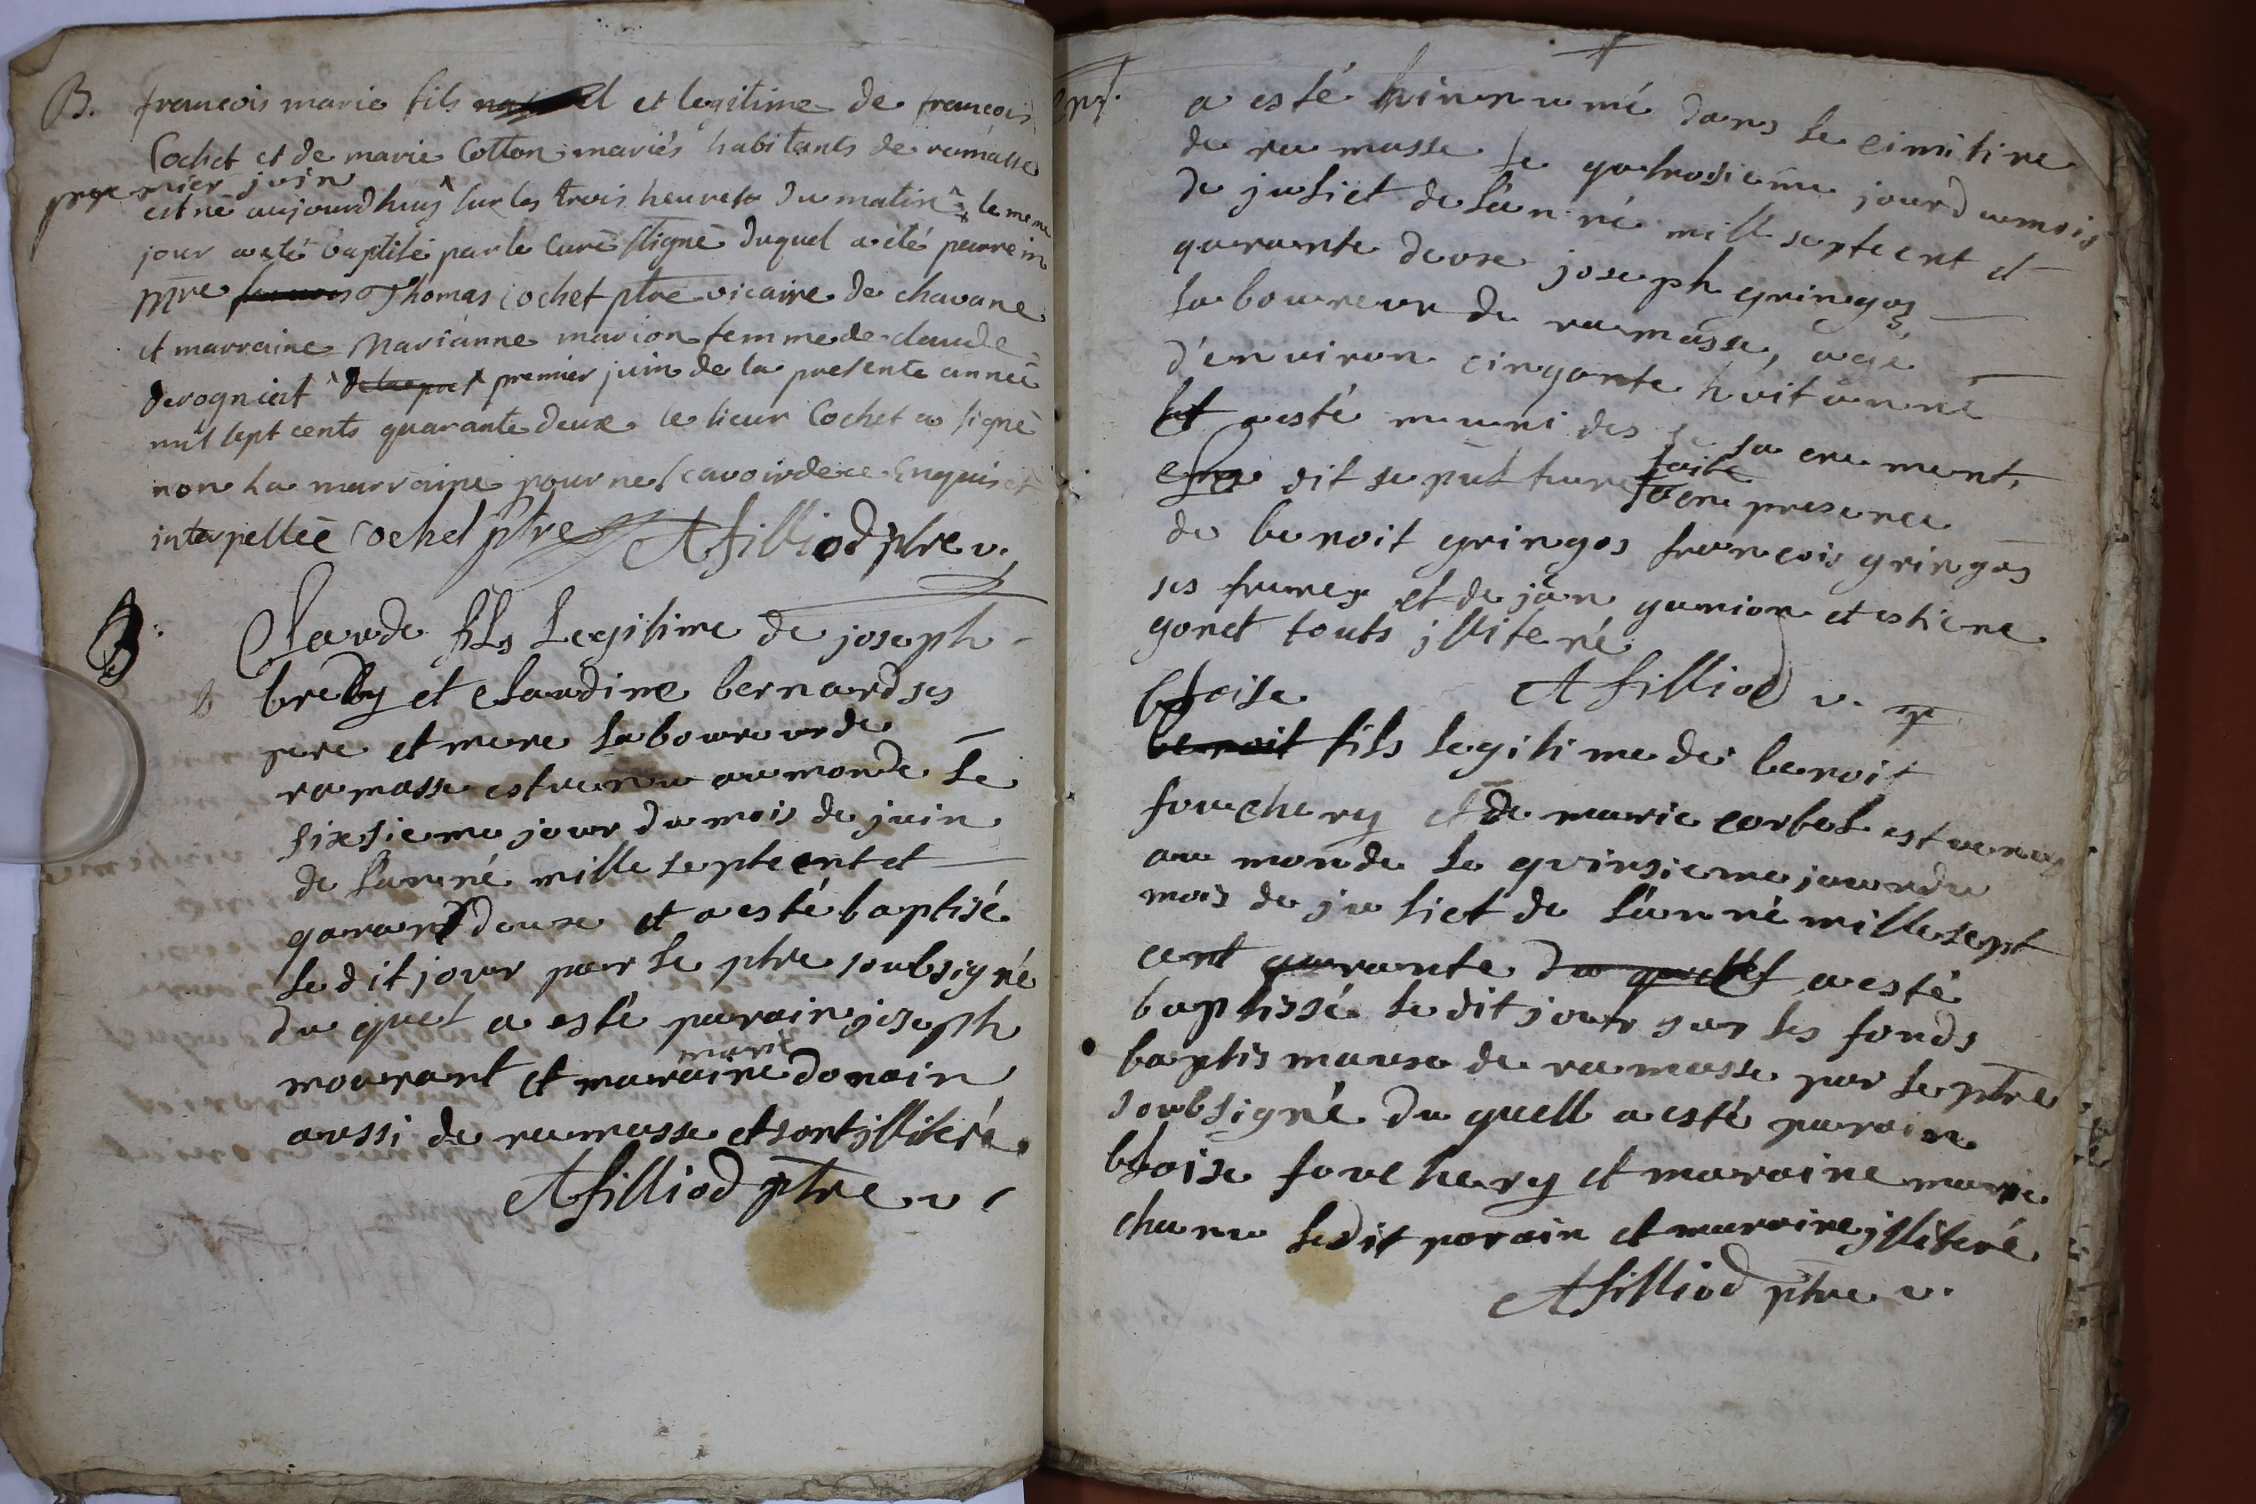 B. francois marie fils et legitime de francois
Cochet et de marie Cotton mariés habitants de ramasse
premier juin
est né aujourdhuy ^ sur les trois heures du matin le meme
jour a eté baptisé par le Curé ssigné duquel a été parrein
Mre francois Thomas Cochet ptre vicaire de chavane
et marraine Marianne marion femme de claude
derogniat ^ premier juin de la presente année
mil sept cents quarante deux le sieur Cochet a signé
non la marraine pour ne scavoir de ce Enquis et
interpellée Cochet ptre Afilliod ptre v.
B.
Claude fils Legitime de joseph
breby et claudine bernard ses
pere et mere laboureur de
ramasse est venu au monde le
sixsieme jour du mois de juin
de l'anné mille septcent et
garant deuxe et a esté baptisé
le dit jour par le ptre soubsigné
du quel a esté parain joseph
mourant et maraine donain
marie
aussi de ramasse et sont jlliteré.
Afilliod ptre v.
a esté hinnumé dans le cimitire
de ramasse le gatrosieme jour du mois
de juliet de l'anné mill septcent et
quarante deuxe joseph gringoz
laboureur de ramasse, agé
d'environ cinqante huit anné
et a esté muni des sacrement,
dit sepulture faite en presence
de benoit gringos francois gringos
ses freres et de jan gunion et estiene
gonet touts jlliteré
Afilliod v.
blaise
benoit fils legitime de benoit
fouchery et de marie corbet est venu
au monde le quinsieme jour du
mois de juliet de l'anné mille sept
cent quarante du quel a esté
baptissé le dit jour sur les fonds
baptismause de ramasse par le ptre
soubsigné du quell a esté parain
blaise fouchery et maraine marie
charu ledit parain et maraine jlliteré
Afilliod ptre v.